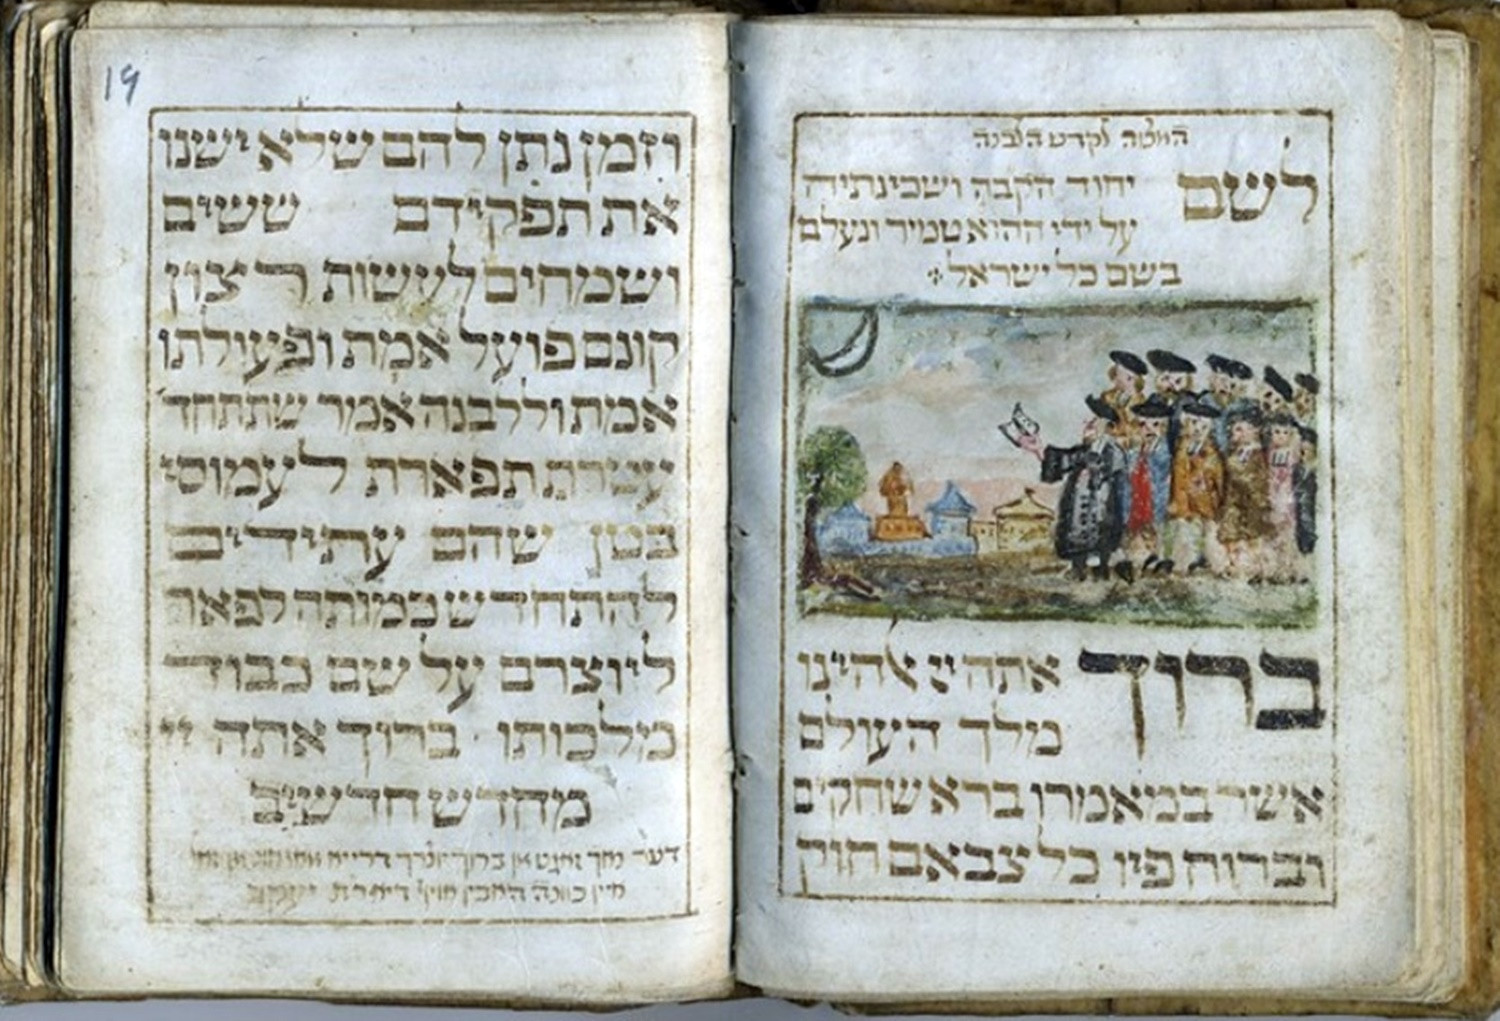 לשם
יחוד הקבה ושכינתיה
על ידי ההוא טמיר ונעלם
בשם כל ישראל
ברוך
אתה יי אלהינו
מלך העולם
אשר במאמרו ברא שחקים
וברוח פיו כל צבאם חוק
19
וזמן נתן להם שלא ישנו
את תפקידם ששים
ושמחים לעשות רצון
קונם פועל אמת ופעולתו
אמת וללבנה אמר שתתחד
עטרת תפארת לעמוסי
בטן שהם עתידים
להתחדש כמותה לפאר
ליוצרם על שם כבוד
מלכותו ברוך אתה יי
מחדש חדשים